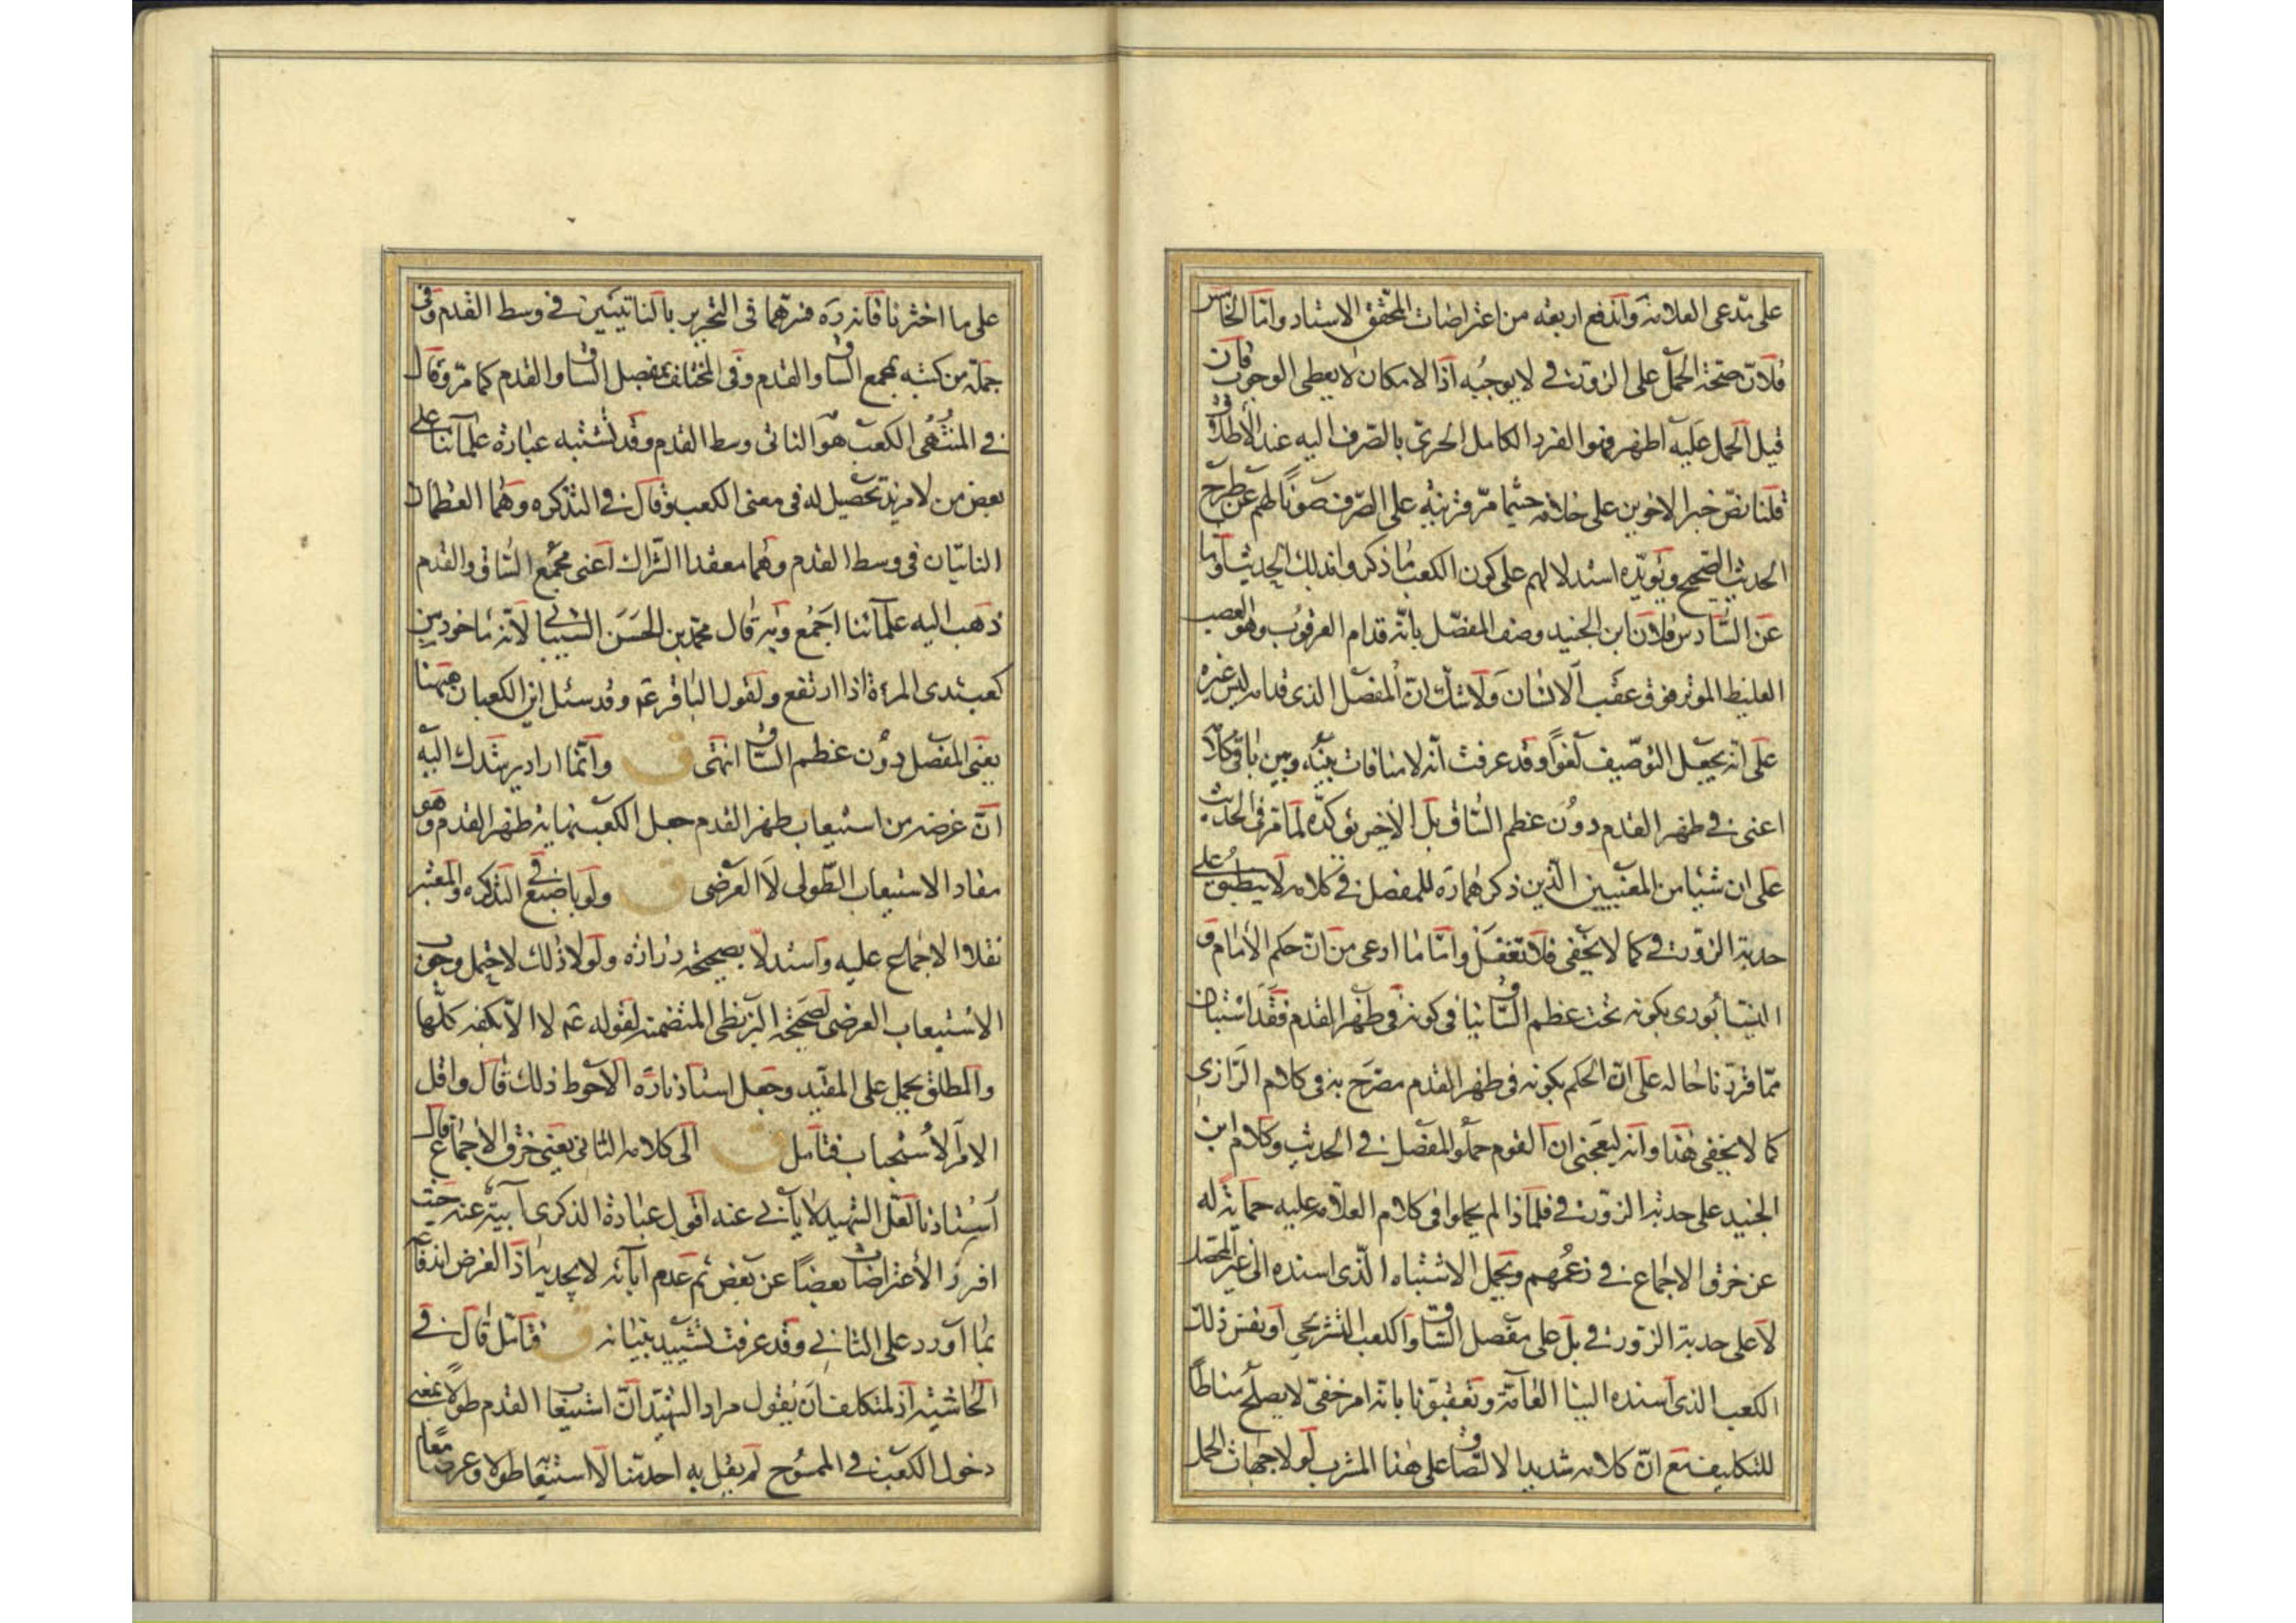 على مدعى العلامة واندفع اربعة من اعتراضات المحقق الاستاد واما الخامس
فلان صحة الحمل على الزورقي لا يوجبه اذ الامكان لا يعطى الوجوب فان
قيل الحمل عليه اظهر فهو الفرد الكامل الحرى بالصرف اليه عند الاطلاق
قلنا نص خبر الاخوين على خلافه حيثما مر قرينة على الصرف صونا لهم عن طرح
الحديث الصحيح ويؤيده استدلالهم على كون الكعب ما ذكروا بذلك الحديث واما
عن السادس فلان ابن الجنيد وصف المفصل بانه قدام العرقوب وهو العصب
الغليظ الموتر فوق عقب الانسان ولا شك ان المفصل الذى قدامه ليس غيره
على انه يجعل التوصيف لغوا وقد عرفت انه لا منافات بينه وبين باقى كلامه
اعنى في ظهر القدم دون عظم الساق بل الاخير يؤكده لما مر في الحديث
على ان شيئا من المعنيين الذين ذكرهما ره للمفصل في كلامه لا ينطبق على
حدبة الزورقي كما لا يخفى فلا تغفل واما ما ادعى من ان حكم الامام و
النيشابورى بكونه تحت عظم الساق ينافى كونه في ظهر القدم فقد استبان
مما قررنا حاله على ان الحكم بكونه في ظهر القدم مصرح به في كلام الرازي
كما لا يخفى هذا وانه ليعجبنى ان القوم حملوا المفصل في الحديث وكلام ابن
الجنيد على حدبة الزورقي فلماذا لم يحملوا في كلام العلامة عليه حماية له
عن خرق الاجماع في زعمهم ويحمل الاشتباه الذى اسنده الى غير المحصل
لا على حدبة الزورقي بل على مفصل الساق والكعب التشريحي او نفس ذلك
الكعب الذى اسنده الينا العامة وتعقبونا بانه امر خفى لا يصلح مناطا
للتكليف مع ان كلامه شديد الالتصاق على هذا المشرب لولا جهات الحمل
على ما اخترنا فانه ره فسرهما في التحرير بالناتيين في وسط القدم وفى
جملة من كتبه بمجمع الساق والقدم وفى المختلف بمفصل الساق والقدم كما مر وقال
في المنتهى الكعب هو الناتى وسط القدم وقد تشتبه عبارة علمائنا على
بعض من لا مزيد تحصيل له في معنى الكعب وقال في التذكره وهما العظمان
الناتيان في وسط القدم وهما معقدا الشراك اعنى مجمع الساق والقدم
ذهب اليه علمائنا اجمع وبه قال محمد بن الحسن الشيبانى لانه ماخوذ من
كعب ثدى المرءة اذا ارتفع ولقول الباقر عم وقد سئل اين الكعبان ههنا
يعنى المفصل دون عظم الساق انتهى ق وانما اراد يرشدك اليه
ان غرضه من استيعاب ظهر القدم جعل الكعب نهاية ظهر القدم وهو
مفاد الاستيعاب الطولى لا العرضى ق ولو باصبع في التذكره والمعتبر
نقلا الاجماع عليه واستدلا بصحيحة زراره ولولا ذلك لاحتمل وجوب
الاستيعاب العرضى لصحيحة البزنطى المتضمنة لقوله عم لا الا بكفه كلها
والمطلق يحمل على المقيد وجعل استاذنا ره الاحوط ذلك قال واقل
الامر الاستحباب فتامل ق الى كلامه الثانى يعنى خرق الاجماع قال
استاذنا لعل الشهيد لا يأبى عنه اقول عبارة الذكرى آبية عنه حيث
افرز الاعتراضات بعضا عن بعض ثم عدم ابائه لا يجديه اذ الغرض اندفاعه
بما اورد على الثاني وقد عرفت تشييد بنيانه ق فتامل قال في
الحاشية اذ لمتكلف ان يقول مراد الشهيد ان استيعاب القدم طولا بمعنى
دخول الكعب في الممسوح لم يقل به احد منا لا استيعابها طولا وعرضا معا